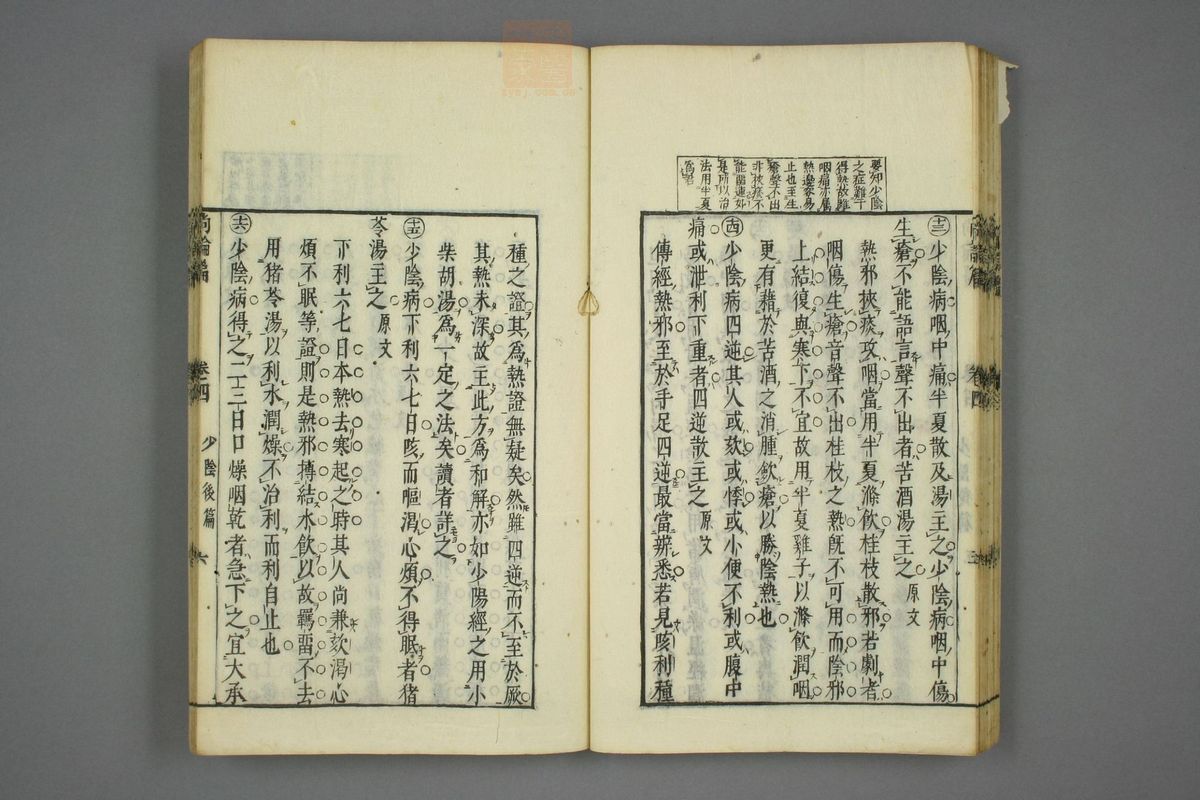 要知少陰
之症雖下
得熱故雖
咽痛亦屬
熱邊容易
止也至生
瘡聲不出
非挾痰不
能畱連如
是所以治
法用半夏
為君
十三少陰病咽中痛半夏散及湯主之少陰病咽中傷
生瘡不能語言聲不出者苦酒湯主之原文
熱邪挾痰攻咽當用半夏滌飲桂枝散邪若劇者
咽傷生瘡音聲不出桂枝之熱旣不可用而陰邪
上結復與寒下不宜故用半夏雞子以滌飲潤咽
更有藉於苦酒之消腫斂瘡以勝陰熱也
十四少陰病四逆其人或欬或悸或小便不利或腹中
痛或泄利下重者四逆散主之原文
傳經熱邪至於手足四逆最當辨悉若見咳利種
種之證其爲熱證無疑矣然雖四逆而不至於厥
其熱未深故主此方爲和解亦如少陽經之用小
柴胡湯爲一定之法矣讀者詳之
十五少陰病下利六七日咳而嘔渴心煩不得眠者猪
苓湯主之原文
下利六七日本熱去寒起之時其人尚兼欬渴心
煩不眠等證則是熱邪摶結水飲以故羈畱不去
用猪苓湯以利水潤燥不治利而利自止也
十六少陰病得之二三日口燥咽乾者急下之宜大承
尚論篇
卷四
少陰後篇
六